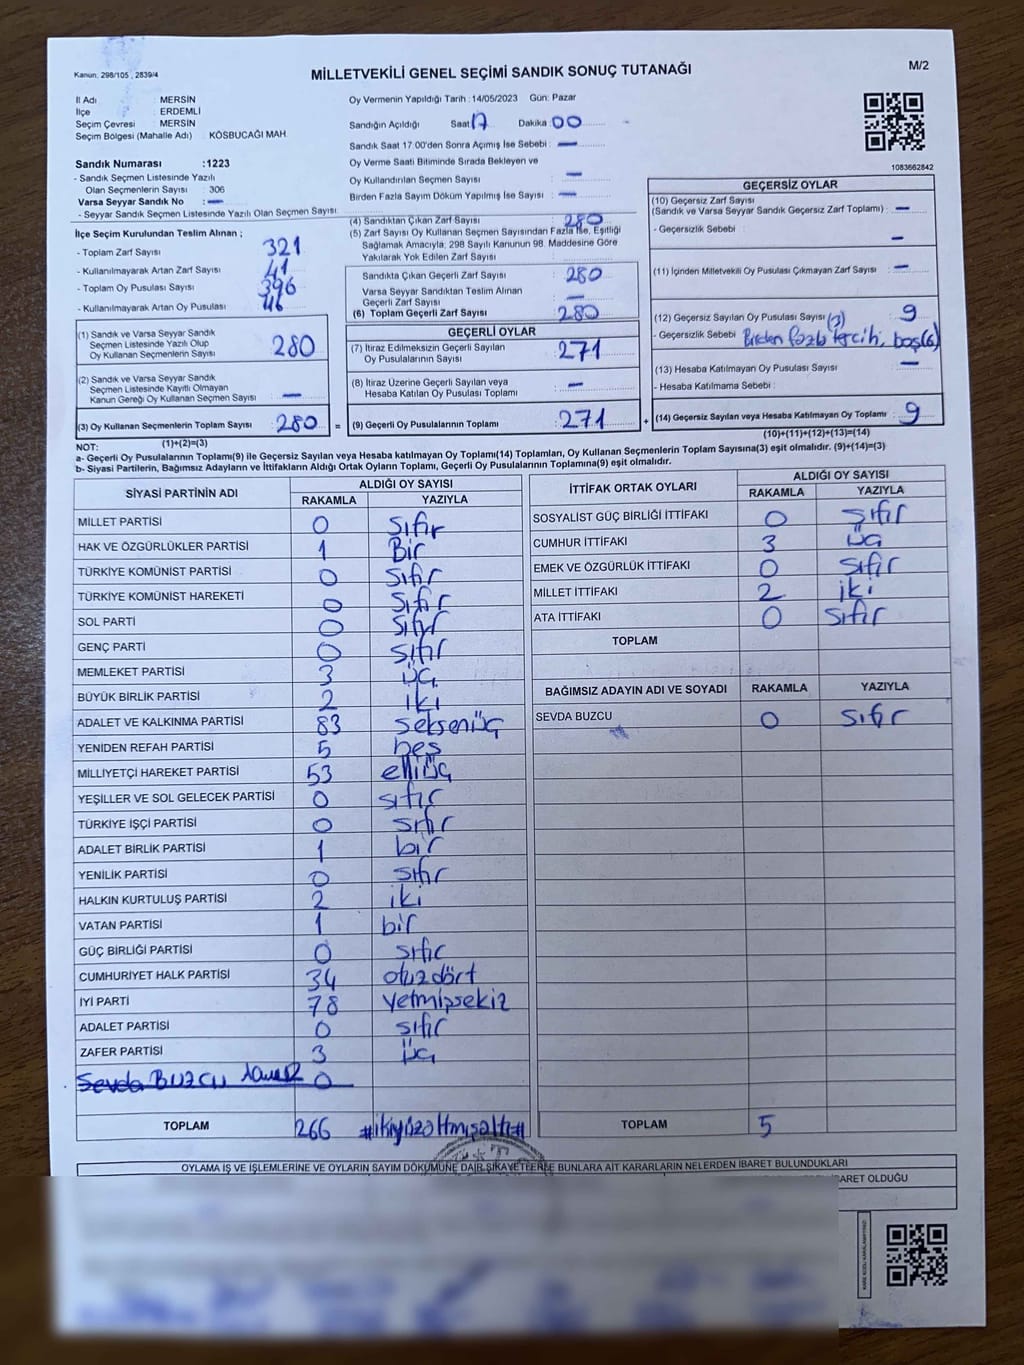 Kanun: 298/105 , 2839/4
MİLLETVEKİLİ GENEL SEÇİMİ SANDIK SONUÇ TUTANAĞI
M/2
İl Adı : MERSİN
İlçe : ERDEMLİ
Seçim Çevresi : MERSİN
Seçim Bölgesi (Mahalle Adı) : KÖSBUCAĞI MAH.
Sandık Numarası :1223
- Sandık Seçmen Listesinde Yazılı
Olan Seçmenlerin Sayısı : 306
Varsa Seyyar Sandık No : —
- Seyyar Sandık Seçmen Listesinde Yazılı Olan Seçmen Sayısı
İlçe Seçim Kurulundan Teslim Alınan ;
- Toplam Zarf Sayısı 321
- Kullanılmayarak Artan Zarf Sayısı 41
- Toplam Oy Pusulası Sayısı 396
- Kullanılmayarak Artan Oy Pusulası
(1) Sandık ve Varsa Seyyar Sandık
Seçmen Listesinde Yazılı Olup
Oy Kullanan Seçmenlerin Sayısı : 280
(2) Sandık ve Varsa Seyyar Sandık
Seçmen Listesinde Kayıtlı Olmayan
Kanun Gereği Oy Kullanan Seçmen Sayısı : —
(3) Oy Kullanan Seçmenlerin Toplam Sayısı : 280 =
(1)+(2)=(3)
Oy Vermenin Yapıldığı Tarih :14/05/2023 Gün: Pazar
Sandığın Açıldığı Saat 17 Dakika : 00
Sandık Saat 17.00'den Sonra Açımış İse Sebebi : —
Oy Verme Saati Bitiminde Sırada Bekleyen ve
Oy Kullandırılan Seçmen Sayısı : —
Birden Fazla Sayım Döküm Yapılmış İse Sayısı : —
(4) Sandıktan Çıkan Zarf Sayısı : 280
(5) Zarf Sayısı Oy Kullanan Seçmen Sayısından Fazla İse, Eşitliği
Sağlamak Amacıyla, 298 Sayılı Kanunun 98. Maddesine Göre
Yakılarak Yok Edilen Zarf Sayısı :
Sandıkta Çıkan Geçerli Zarf Sayısı : 280
Varsa Seyyar Sandıktan Teslim Alınan
Geçerli Zarf Sayısı : —
(6) Toplam Geçerli Zarf Sayısı : 280
GEÇERLİ OYLAR
(7) İtiraz Edilmeksizin Geçerli Sayılan
Oy Pusulalarının Sayısı : 271
(8) İtiraz Üzerine Geçerli Sayılan veya
Hesaba Katılan Oy Pusulası Toplamı : —
(9) Geçerli Oy Pusulalarının Toplamı : 271 +
1083662842
GEÇERSİZ OYLAR
(10) Geçersiz Zarf Sayısı
(Sandık ve Varsa Seyyar Sandık Geçersiz Zarf Toplamı) : —
- Geçersizlik Sebebi : —
(11) İçinden Milletvekili Oy Pusulası Çıkmayan Zarf Sayısı : —
(12) Geçersiz Sayılan Oy Pusulası Sayısı : 9
(3)
- Geçersizlik Sebebi : Birden fazla tercih, boş(6)
(13) Hesaba Katılmayan Oy Pusulası Sayısı : —
- Hesaba Katılmama Sebebi :
(14) Geçersiz Sayılan veya Hesaba Katılmayan Oy Toplamı : 9
(10)+(11)+(12)+(13)=(14)
NOT:
a- Geçerli Oy Pusulalarının Toplamı(9) ile Geçersiz Sayılan veya Hesaba katılmayan Oy Toplamı(14) Toplamları, Oy Kullanan Seçmenlerin Toplam Sayısına(3) eşit olmalıdır. (9)+(14)=(3)
b- Siyasi Partilerin, Bağımsız Adayların ve İttifakların Aldığı Ortak Oyların Toplamı, Geçerli Oy Pusulalarının Toplamına(9) eşit olmalıdır.
SİYASİ PARTİNİN ADI ALDIĞI OY SAYISI
RAKAMLA YAZIYLA
MİLLET PARTİSİ 0 sıfır
HAK VE ÖZGÜRLÜKLER PARTİSİ 1 Bir
TÜRKİYE KOMÜNİST PARTİSİ 0 sıfır
TÜRKİYE KOMÜNİST HAREKETİ 0 sıfır
SOL PARTİ 0 sıfır
GENÇ PARTİ 0 sıfır
MEMLEKET PARTİSİ 3 üç
BÜYÜK BİRLİK PARTİSİ 2 iki
ADALET VE KALKINMA PARTİSİ 83 seksenüç
YENİDEN REFAH PARTİSİ 5 beş
MİLLİYETÇİ HAREKET PARTİSİ 53 elliüç
YEŞİLLER VE SOL GELECEK PARTİSİ 0 sıfır
TÜRKİYE İŞÇİ PARTİSİ 0 sıfır
ADALET BİRLİK PARTİSİ 1 bir
YENİLİK PARTİSİ 0 sıfır
HALKIN KURTULUŞ PARTİSİ 2 iki
VATAN PARTİSİ 1 bir
GÜÇ BİRLİĞİ PARTİSİ 0 sıfır
CUMHURİYET HALK PARTİSİ 34 otuzdört
İYİ PARTİ 78 yetmişsekiz
ADALET PARTİSİ 0 sıfır
ZAFER PARTİSİ 3 üç
Sevda BUZCU 0
TOPLAM 266 #ikiyüzaltmışaltı#
İTTİFAK ORTAK OYLARI ALDIĞI OY SAYISI
RAKAMLA YAZIYLA
SOSYALİST GÜÇ BİRLİĞİ İTTİFAKI 0 sıfır
CUMHUR İTTİFAKI 3 üç
EMEK VE ÖZGÜRLÜK İTTİFAKI 0 sıfır
MİLLET İTTİFAKI 2 iki
ATA İTTİFAKI 0 sıfır
TOPLAM
BAĞIMSIZ ADAYIN ADI VE SOYADI RAKAMLA YAZIYLA
SEVDA BUZCU 0 sıfır
TOPLAM 5
OYLAMA İŞ VE İŞLEMLERİNE VE OYLARIN SAYIM DÖKÜMÜNE DAİR ŞİKAYETLERLE BUNLARA AİT KARARLARIN NELERDEN İBARET BULUNDUKLARI
BARET OLDUĞU